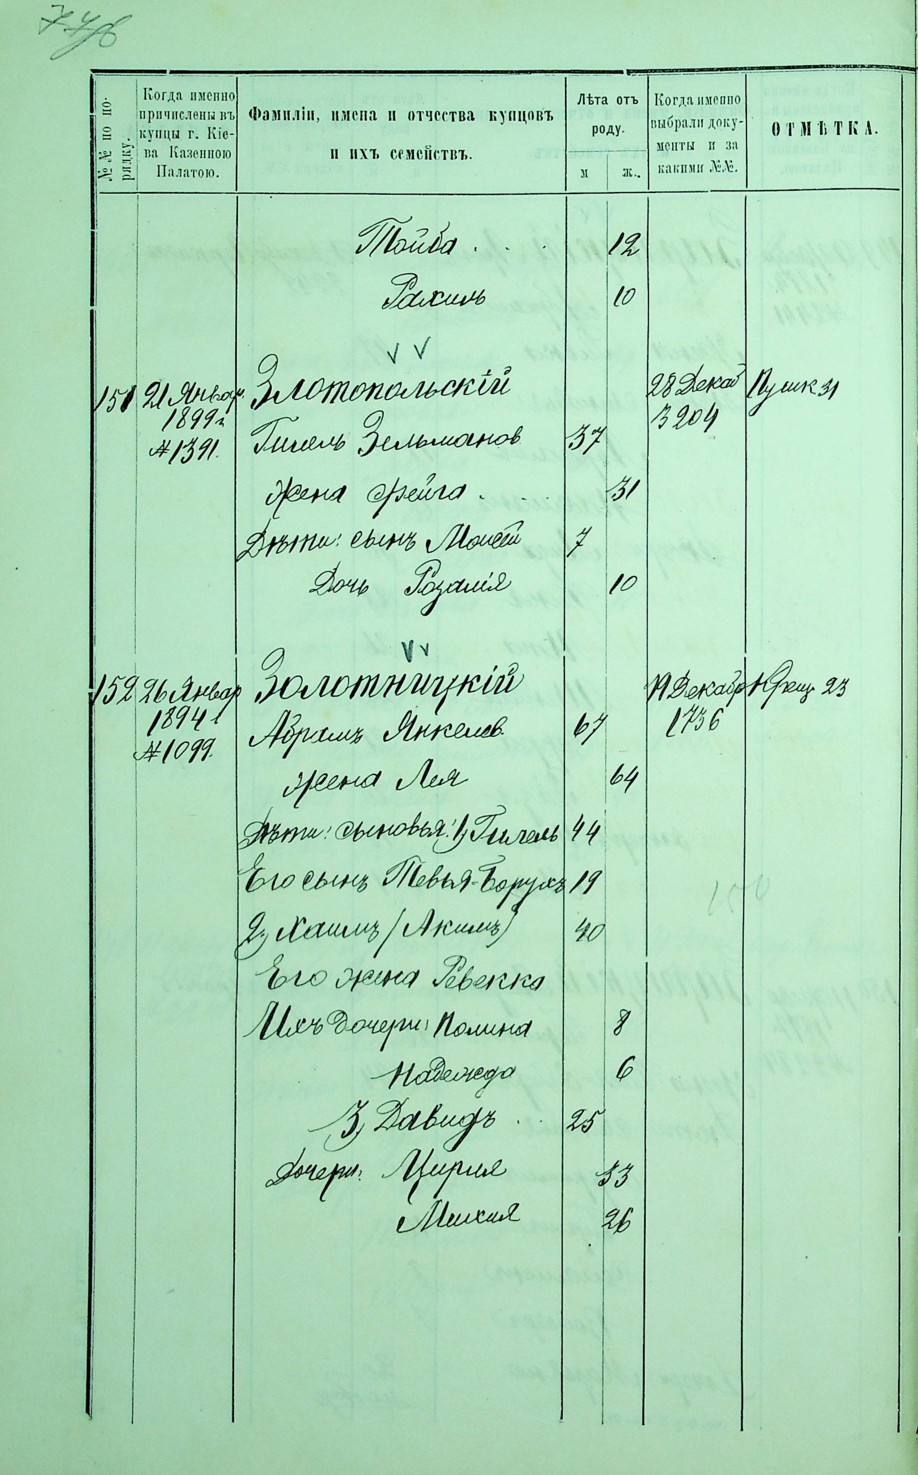 77об
№№ по порядку.
Когда именно причислены въ купцы г. Кіева Казенною Палатою.
Фамиліи, имена и отчества купцовъ и ихъ семействъ.
Лѣта отъ роду.
м
ж.
Когда именно выбрали документы и за какими №№.
ОТМѢТКА.
Тойба 12
Рахиль 10
151 21 Январ. Злотопольскій 28 Декаб Пушк 31
1899 г 3204
№ 1391. Гилель Зельманов 37
жена Фейга 31
Дѣти: сынъ Моисей 7
Дочь Розалія 10
152 26 Январ Золотницкій 19 Декабр Крещ 23
1894 г 1736
№ 1099. Абрамъ Янкелев 67
жена Лея 64
Дѣти: сыновья: 1) Гилель 44
Его сынъ Тевья-Борухъ 19
2) Хаимъ (Акимъ) 40
Его жена Ревекка
Ихъ дочери: Полина 8
Надежда 6
3) Давидъ 25
Дочери: Цирия 33
26
150